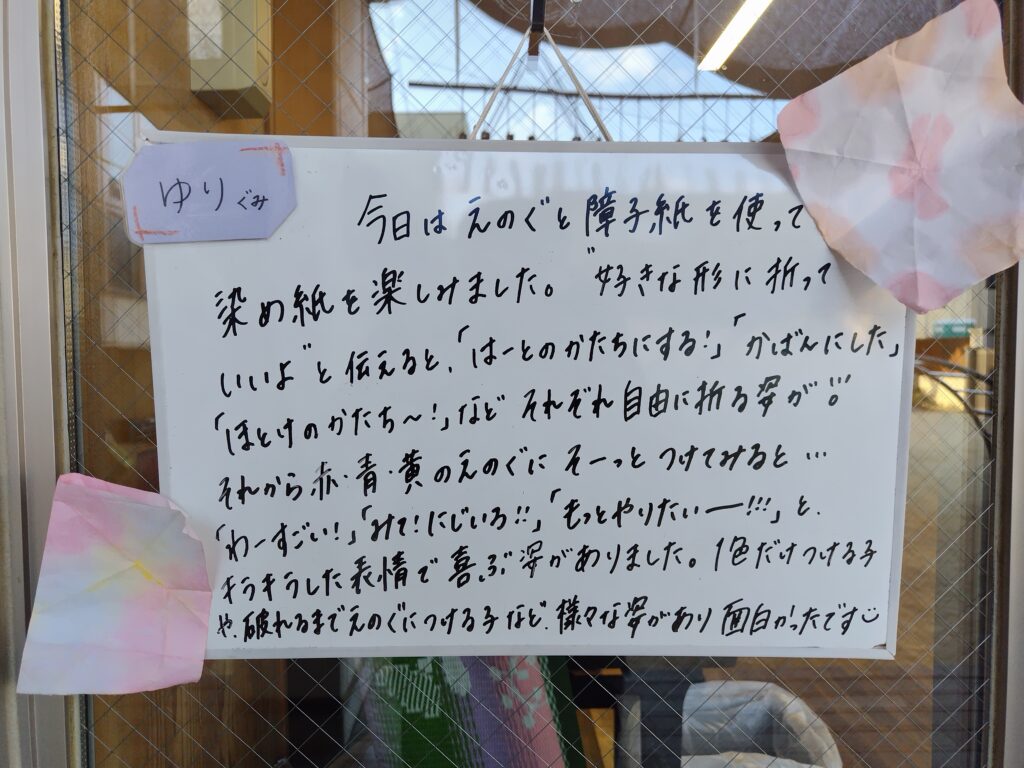 ゆりぐみ
今日はえのぐと障子紙を使って
染め紙を楽しみました。"好きな形に折って
いいよ"と伝えると、「はーとのかたちにする!」「かばんにした」
「ほとけのかたち〜!」など それぞれ自由に折る姿が!!
それから赤・青・黄のえのぐに そーっと つけてみると…
「わーすごい!」「みて!にじいろ!!」「もっとやりたいー!!!」と、
キラキラした表情で喜ぶ姿がありました。1色だけつける子
や、破れるまでえのぐにつける子など、様々な姿があり 面白かったです☺